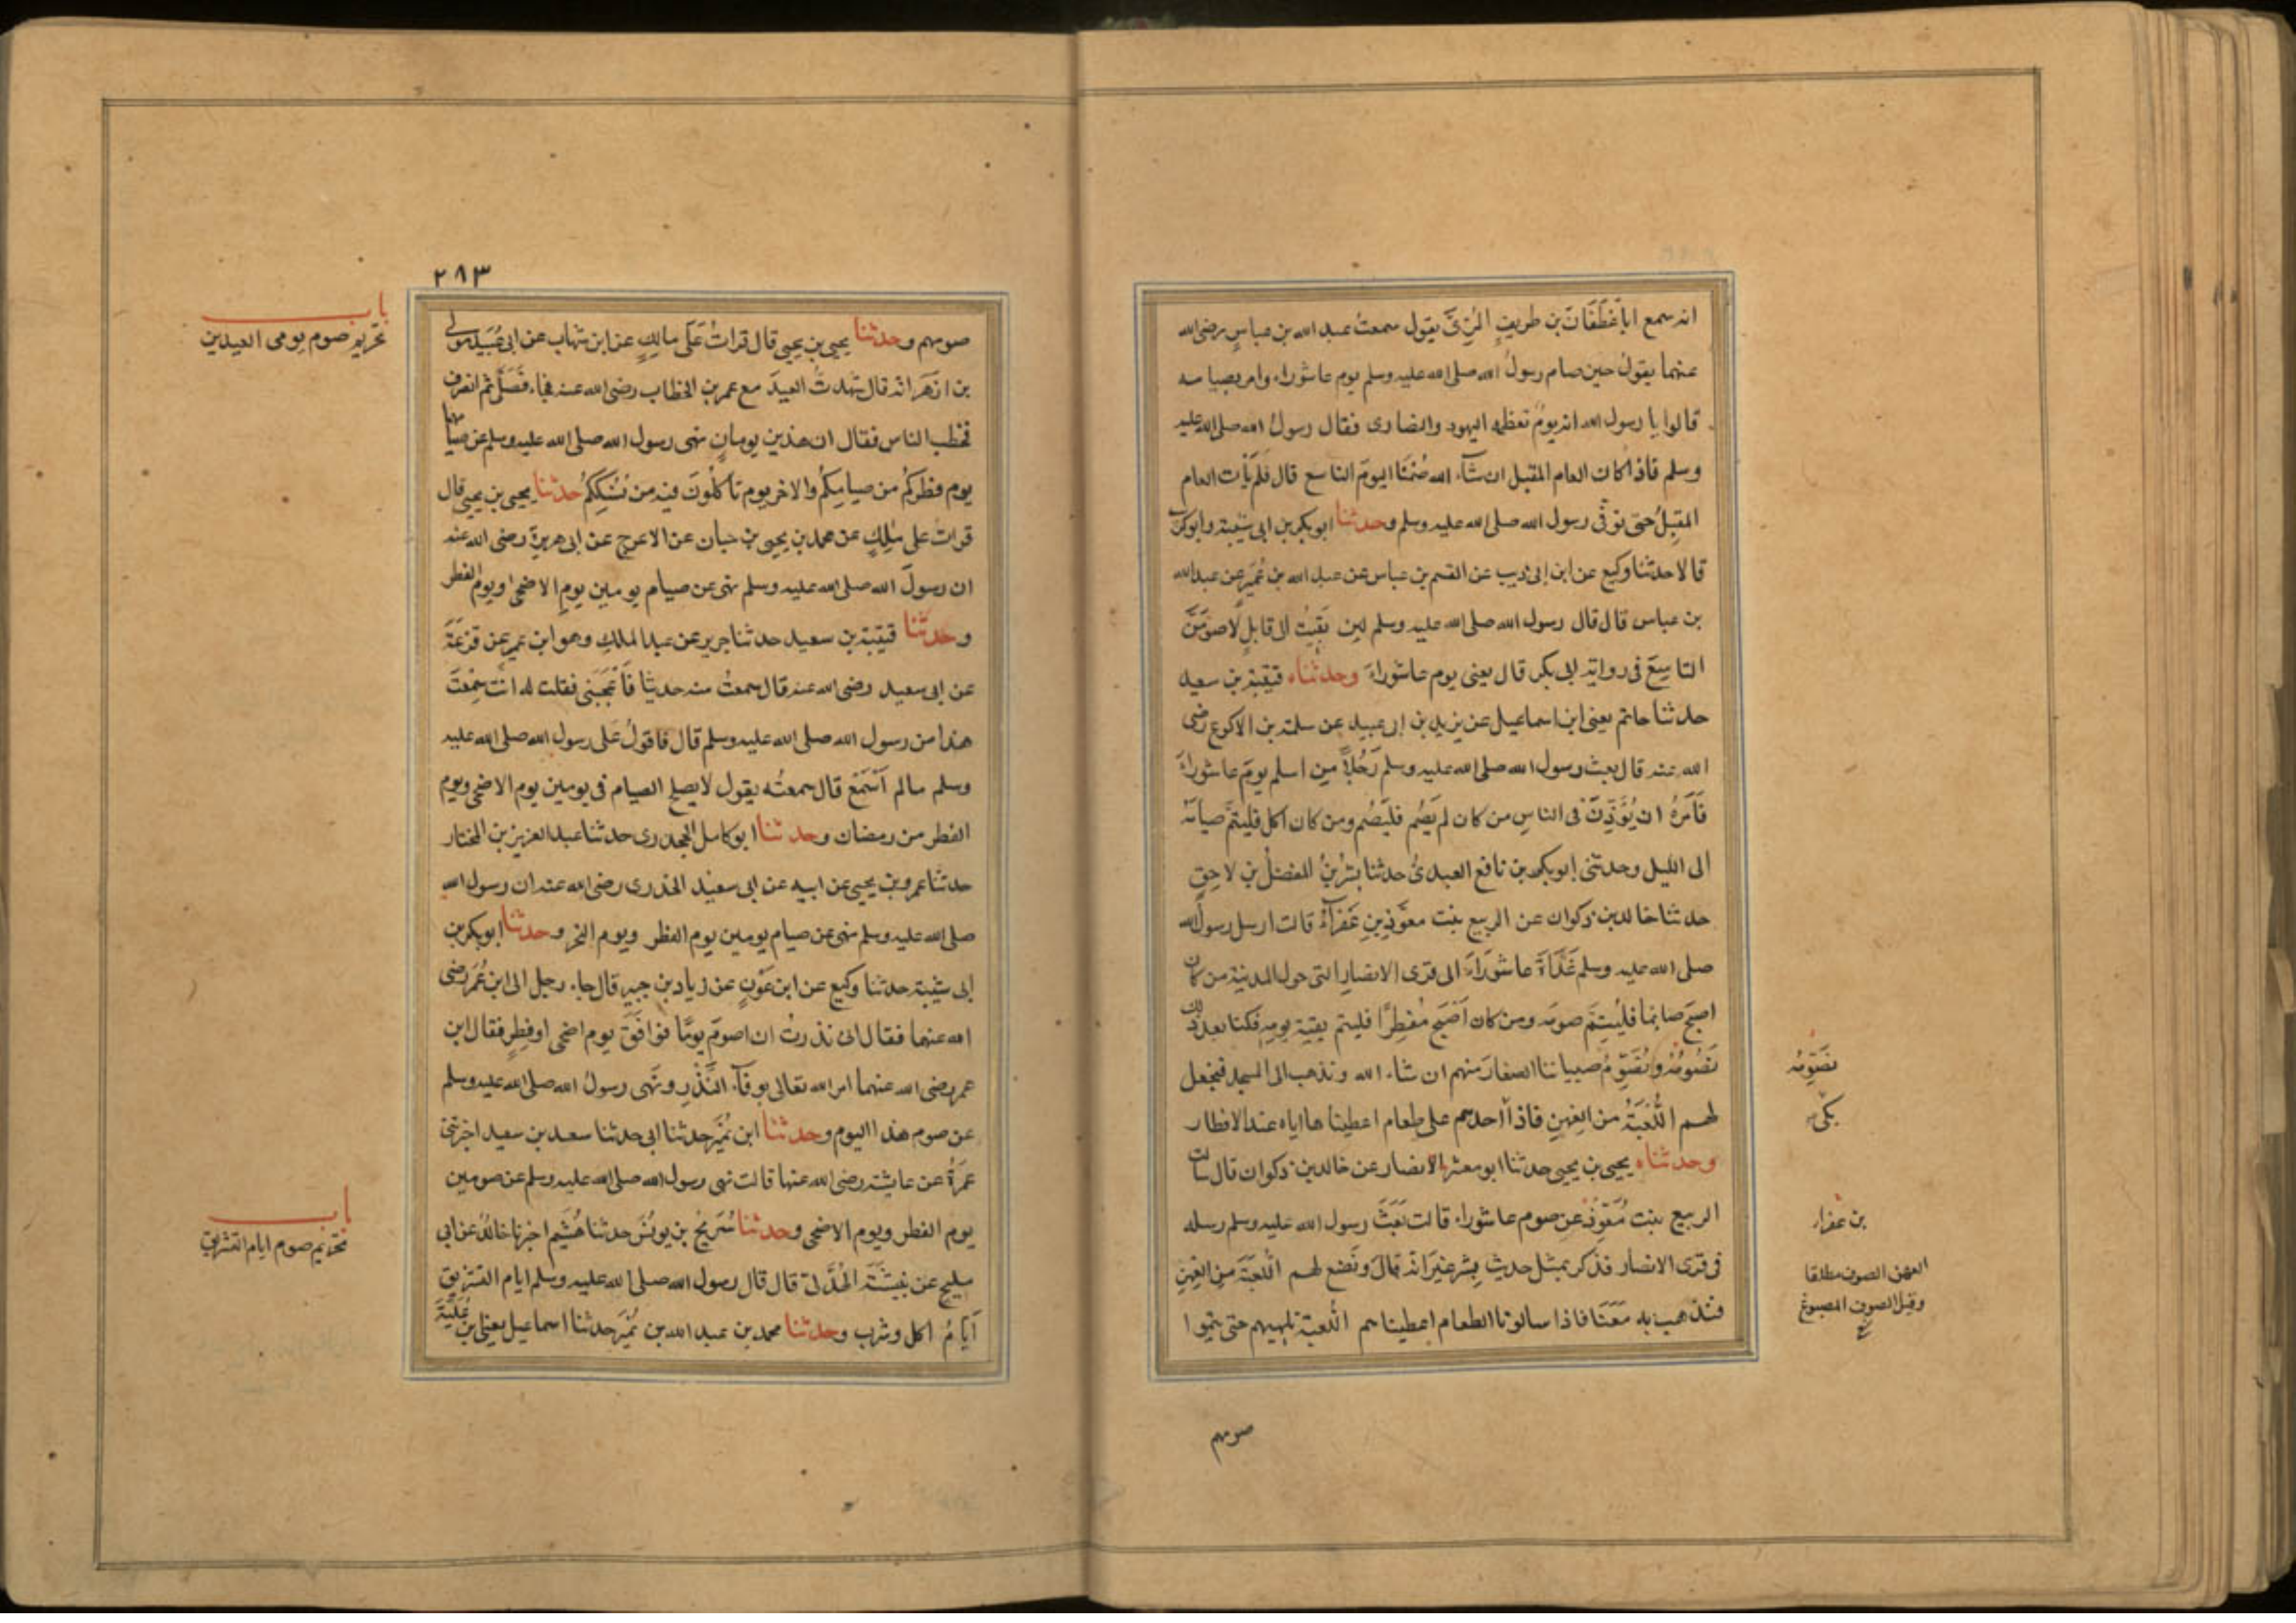 انه سمع ابا غطفان بن طريف المري يقول سمعت عبد الله بن عباس رضى الله
عنهما يقول حين صام رسول الله صلى الله عليه وسلم يوم عاشوراء وامر بصيامه
قالوا يا رسول الله انه يوم تعظمه اليهود والنصارى فقال رسول الله صلى الله عليه
وسلم فاذا كان العام المقبل ان شاء الله صُمْنَا اليوم التاسع قال فلم يأت العام
المقبل حتى توفى رسول الله صلى الله عليه وسلم وحدثنا ابو بكر بن ابى شيبة وابو كريب
قالا حدثنا وكيع عن ابن ابى ذيب عن القسم بن عباس عن عبد الله بن عُمَير عن عبد الله
بن عباس قال قال رسول الله صلى الله عليه وسلم لين بقيت الى قابل لاصومنَّ
التاسِعَ فى رواية ابى بكر قال يعنى يوم عاشوراء وحدثناه قتيبة بن سعيد
حدثنا حاتم يعنى ابن اسماعيل عن يزيد بن ابى عبيد عن سلمة بن الاكوع رضى
الله عنه قال بعث رسول الله صلى الله عليه وسلم رَجُلًا من اسلم يوم عاشوراء
فَاَمَرَهُ ان يُؤَذِّنَ فى الناس من كان لم يَصُم فليَصُم ومن كان اكل فليتمَّ صيامَهُ
الى الليل وحدثنى ابو بكر بن نافع العبدىُّ حدثنا بشر بنُ المفضل بن لاحِقٍ
حدثنا خالد بن ذكوان عن الربيع بنت معوّذ بنِ عَفْرَآءَ قالت ارسل رسول الله
صلى الله عليه وسلم غَدَاةَ عاشوراءَ الى قرى الانصار التى حول المدينة من كان
اصبح صايما فليُتِمَّ صومه ومن كان اَصْبَحَ مُفطِرًا فليتم بقية يومِه فكنا بعد ذلك
نَصُومُهُ ونُصَوِّمُ صبياننا الصغارَ منهم ان شاء الله ونذهب الى المسجد فنجعل
نصومه
لهم اللُّعْبَةَ من العِهنِ فاذا احدهم على طعام اعطيناها اياه عند الافطار
بكى
وحدثناه يحيى بن يحيى حدثنا ابو معشر الانصار عن خالد بن ذكوان قال سالت
الربيع بنت مُعَوِّذٍ عن صوم عاشوراء قالت بَعَثَ رسول الله عليه وسلم رسله
بن عفراء
فى قرى الانصار فذكر بمثل حديث بِشرٍ غيرَ انه قال ونَصْنَع لهم اللُّعبَةَ من العِهنِ
العهن الصوف مطلقا
وقيل الصوف المصبوغ
فنذهب به مَعَنَا فاذا سالونا الطعام اعطيناهم اللُّعبة تلهيهم حتى يتموا
صومهم
٢٨٣
باب
تحريم صوم يومى العيدين
صومهم وحدثنا يحيى بن يحيى قال قرات على مالك عن ابن شهاب عن ابى عُبَيد مولى
بن ازهَرَ انه قال شهدتُ العيد مع عمر بن الخطاب رضى الله عنه فجاء فَصَلَّى ثم انصرف
فخطب الناس فقال ان هذين يومان نهى رسول الله صلى الله عليه وسلم عن صيامهما
يوم فطركم من صيامِكُم والاخر يوم تأكلُونَ فيه من نُسُكِكُم حدثنا يحيى بن يحيى قال
قرات على ملك عن محمد بن يحيى بن حبان عن الاعرج عن ابى هريرة رضى الله عنه
ان رسولَ الله صلى الله عليه وسلم نهى عن صيام يومين يومِ الاضحى ويوم الفطر
وحدثنا قتيبة بن سعيد حدثنا جرير عن عبد الملك وهو ابن عمير عن قزعَةَ
عن ابى سعيد رضى الله عنه قال سمعتُ منه حديثا فَاَعْجَبَنى فقلت له انت سَمِعتَ
هذا من رسول الله صلى الله عليه وسلم قال فاقولُ على رسول الله صلى الله عليه
وسلم مالم اَسْمَعْ قال سمعتُه يقول لا يصلح الصيام فى يومين يوم الاضحى ويوم
الفطر من رمضان وحدثنا ابو كامل الجحدرى حدثنا عبد العزيز بن المختار
حدثنا عمرو بن يحيى عن ابيه عن ابى سعيد الخدرى رضى الله عنه ان رسول الله
صلى الله عليه وسلم نهى عن صيام يومين يوم الفطر ويوم النحر وحدثنا ابو بكر بن
ابى شيبة حدثنا وكيع عن ابن عَوْنٍ عن زياد بن جبير قال جاء رجل الى ابن عُمَرَ رضى
الله عنهما فقال انى نذرتُ ان اصومَ يومًا فوافَقَ يوم اضحى او فطر فقال ابن
عمر رضى الله عنهما امر الله تعالى بوفآء النَّذْرِ ونَهى رسولُ الله صلى الله عليه وسلم
عن صوم هذا اليوم وحدثنا ابن نُمَير حدثنا ابى حدثنا سعد بن سعيد اخبرتنى
عَمرَةُ عن عايشة رضى الله عنها قالت نهى رسول الله صلى الله عليه وسلم عن صومين
باب
تحريم صوم ايام التشريق
يوم الفطر ويوم الاضحى وحدثنا سُرَيجُ بن يونُسَ حدثنا هُشَيم اخبرنا خالدٌ عن ابى
مليح عن نبيشَةَ الهُذَلى قال قال رسول الله صلى الله عليه وسلم ايام التشريق
اَيَّامُ اكل وشرب وحدثنا محمد بن عبد الله بن نُمَير حدثنا اسماعيل يعنى بن عُلَيَّةَ